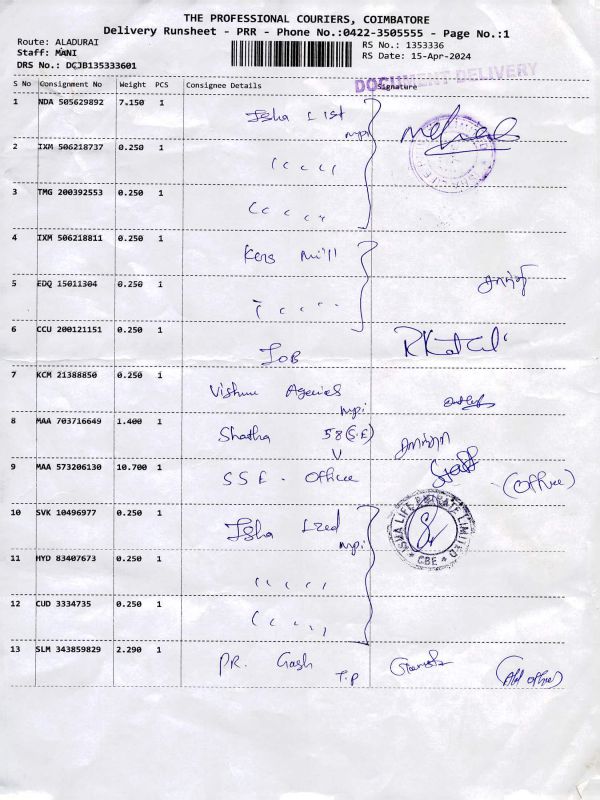 THE PROFESSIONAL COURIERS, COIMBATORE
Delivery Runsheet - PRR - Phone No.:0422-3505555 - Page No.:1
Route: ALADURAI
Staff: MANI
DRS No.: DCJB135333601
RS No.: 1353336
RS Date: 15-Apr-2024
DOCUMENT DELIVERY
S No Consignment No Weight PCS Consignee Details Signature
1 NDA 505629892 7.150 1 Isha
2 IXM 506218737 0.250 1
3 TMG 200392553 0.250 1
4 IXM 506218811 0.250 1 Kers Mill
5 EDQ 15011304 0.250 1
6 CCU 200121151 0.250 1 IOB
7 KCM 21388850 0.250 1 Vishnu Agencies
8 MAA 703716649 1.400 1 58 (S.E) V
9 MAA 573206130 10.700 1 SSE. Office Staff (Office)
10 SVK 10496977 0.250 1 Isha ISHA LIFE PRIVATE LIMITED * CBE *
11 HYD 83407673 0.250 1
12 CUD 3334735 0.250 1
13 SLM 343859829 2.290 1 PR. T.P